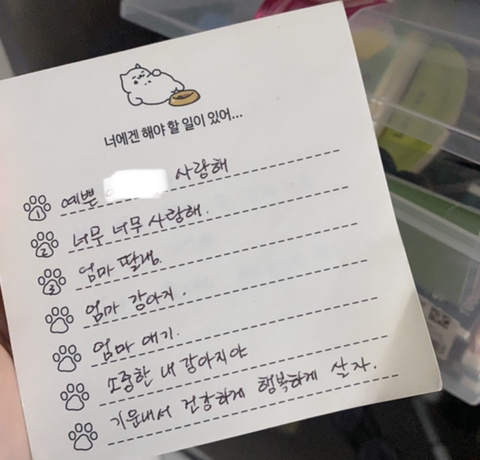 너에겐 해야 할 일이 있어...
1 예쁜 사랑해
2 너무 너무 사랑해.
3 엄마 딸냄
엄마 강아지.
엄마 애기.
소중한 내 강아지야
기운내서 건강하게 행복하게 살자.